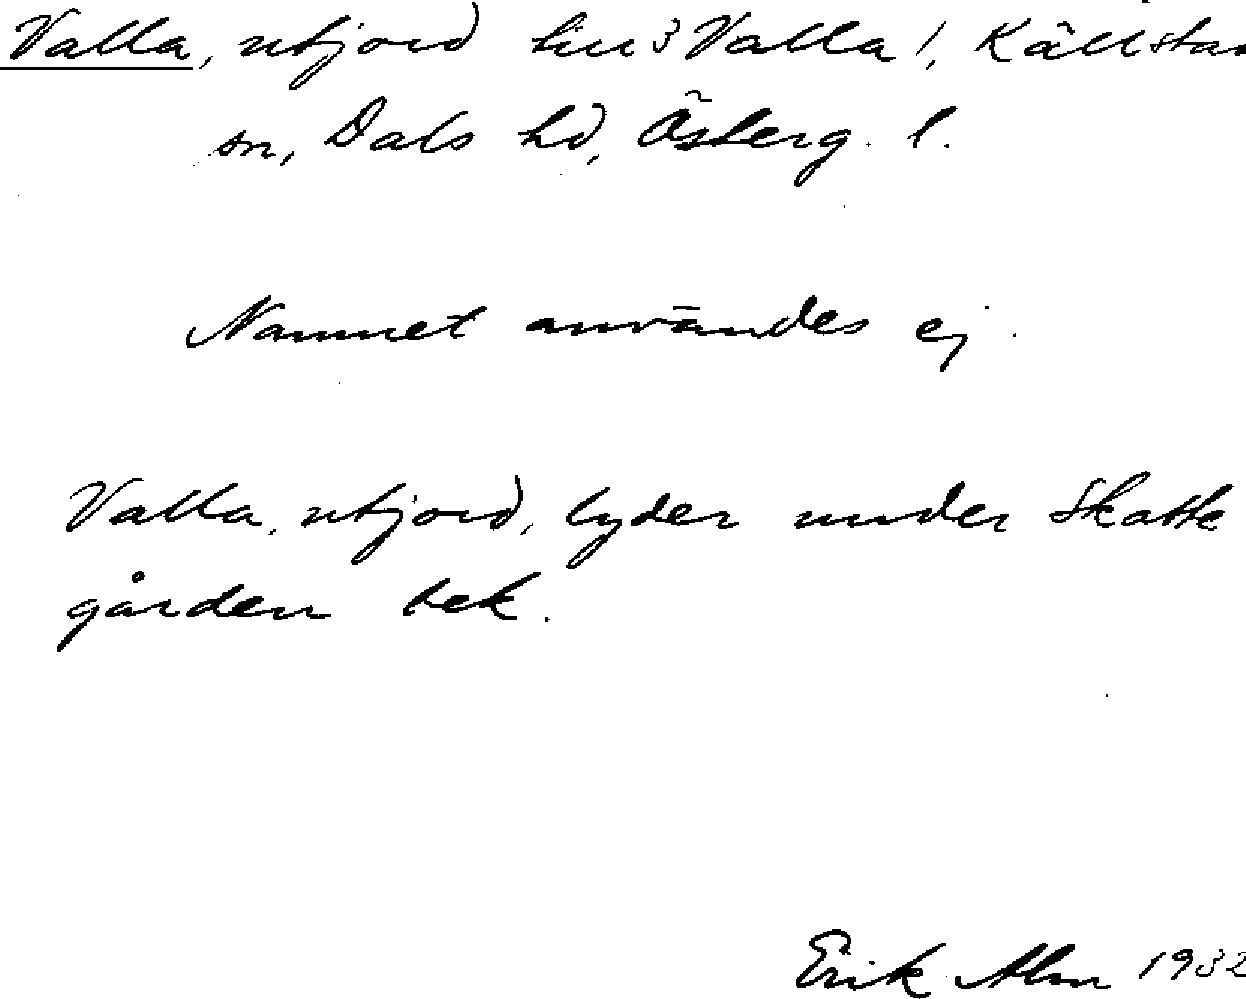 Valla, utjord till 3 Valla 1, Källstad
sn, Dals hd, Österg. l.
Namnet användes ej.
Valla, utjord, lyder under Skatte
gården bek.
Erik Alm 1932